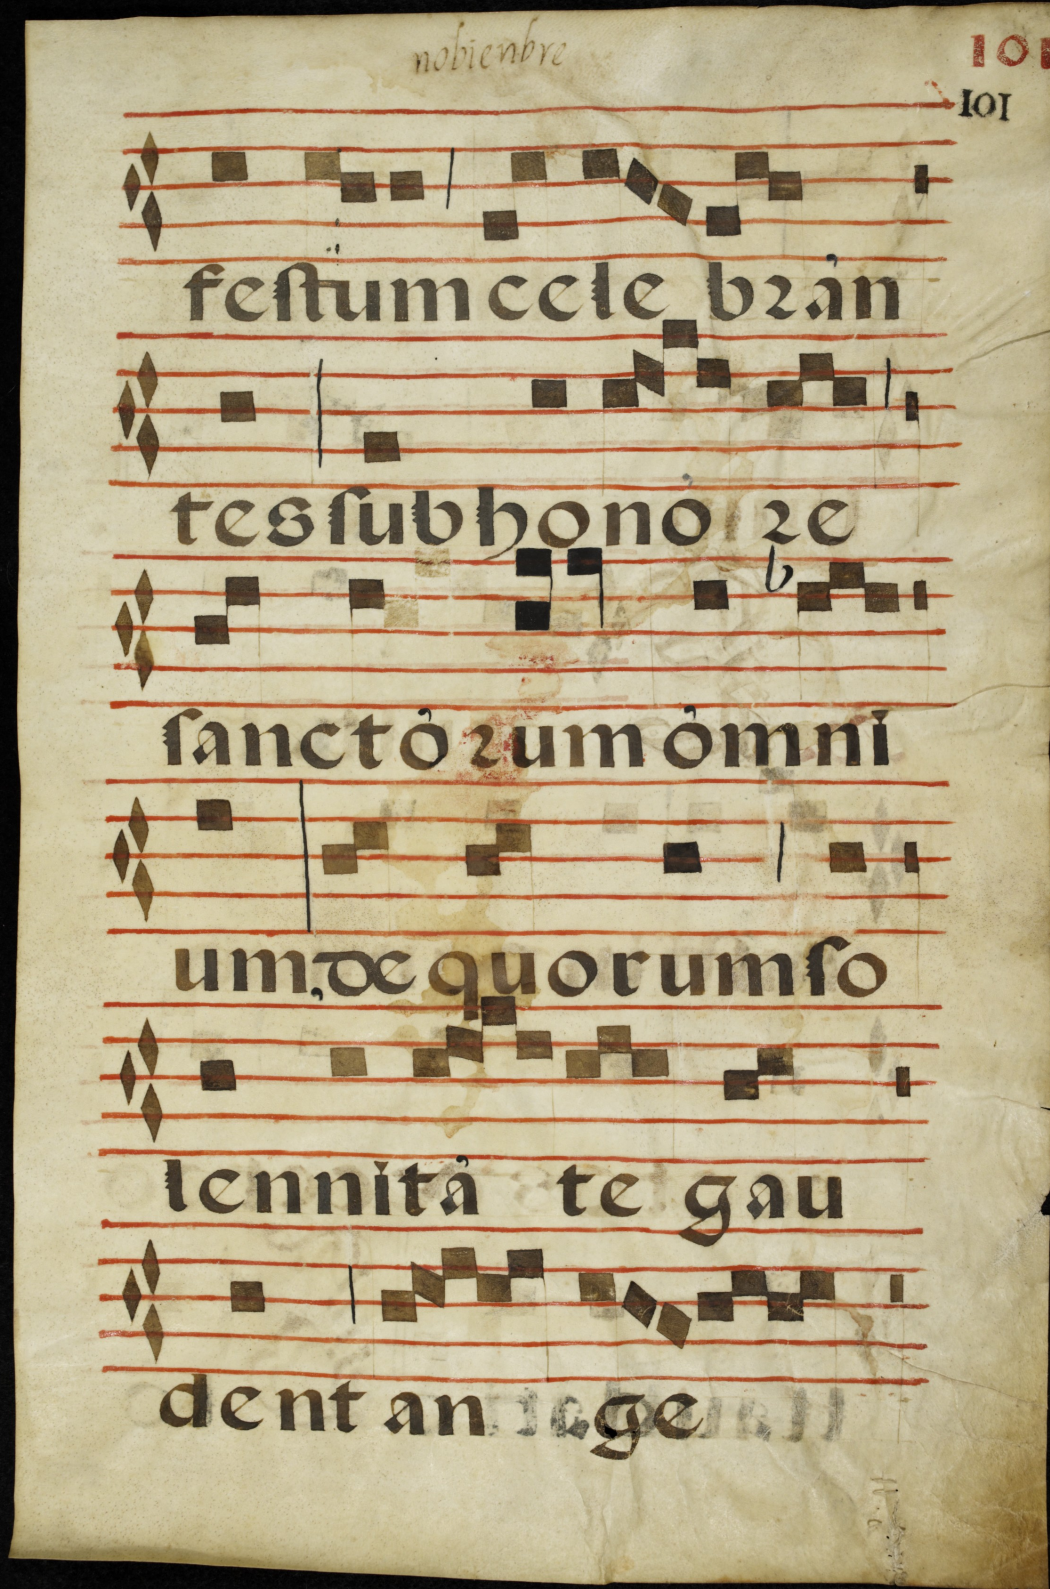 nobienbre
101
101
festum cele brán
tes sub honó re
sanctórum ómni
um, de quorum so
lennitá te gau
dent an ge